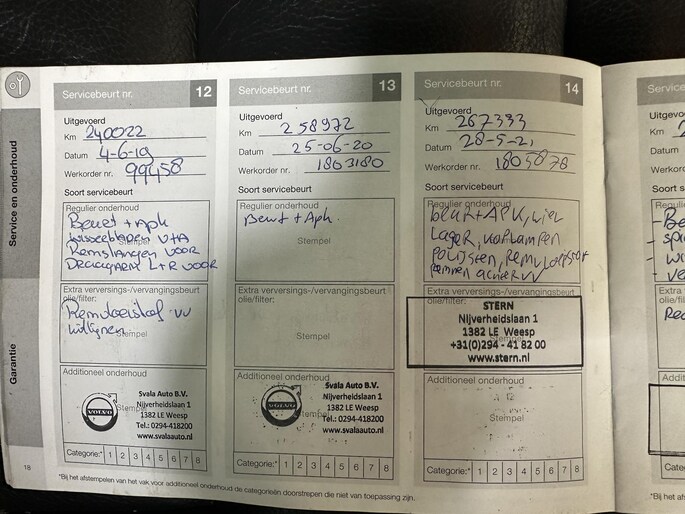 Service en onderhoud
Garantie
18
Servicebeurt nr. 12
Uitgevoerd
Km 240022
Datum 4-6-19
Werkorder nr. 99458
Soort servicebeurt
Regulier onderhoud
Beurt + Apk
wisserbladen V+A
Remslangen voor
Draagarm L+R voor
Stempel
Extra verversings-/vervangingsbeurt
olie/filter:
Remvloeistof vv
Stempel
Additioneel onderhoud
Stempel
VOLVO
Svala Auto B.V.
Nijverheidslaan 1
1382 LE Weesp
Tel.: 0294-418200
www.svalaauto.nl
Categorie:* 1 2 3 4 5 6 7 8
Servicebeurt nr. 13
Uitgevoerd
Km 258972
Datum 25-06-20
Werkorder nr. 1803180
Soort servicebeurt
Regulier onderhoud
Beurt + Apk.
Stempel
Extra verversings-/vervangingsbeurt
olie/filter:
Stempel
Additioneel onderhoud
VOLVO
Svala Auto B.V.
Nijverheidslaan 1
1382 LE Weesp
Tel.: 0294-418200
www.svalaauto.nl
Categorie:* 1 2 3 4 5 6 7 8
Servicebeurt nr. 14
Uitgevoerd
Km 267333
Datum 28-5-21
Werkorder nr. 1805878
Soort servicebeurt
Regulier onderhoud
beurt + APK, wiel
Lager, koplampen
Polijsten, Remvloeistof
Remmen achter vv
Extra verversings-/vervangingsbeurt
olie/filter:
STERN
Nijverheidslaan 1
1382 LE Weesp
+31(0)294 - 41 82 00
www.stern.nl
Additioneel onderhoud
Stempel
Categorie:* 1 2 3 4 5 6 7 8
*Bij het afstempelen van het vak voor additioneel onderhoud de categorieën doorstrepen die niet van toepassing zijn.
Service
Uitgevoerd
Km
Datum
Werkorde
Soort s
Regulie
Extra ve
olie/filter
Additio
Catego
*Bij het afs